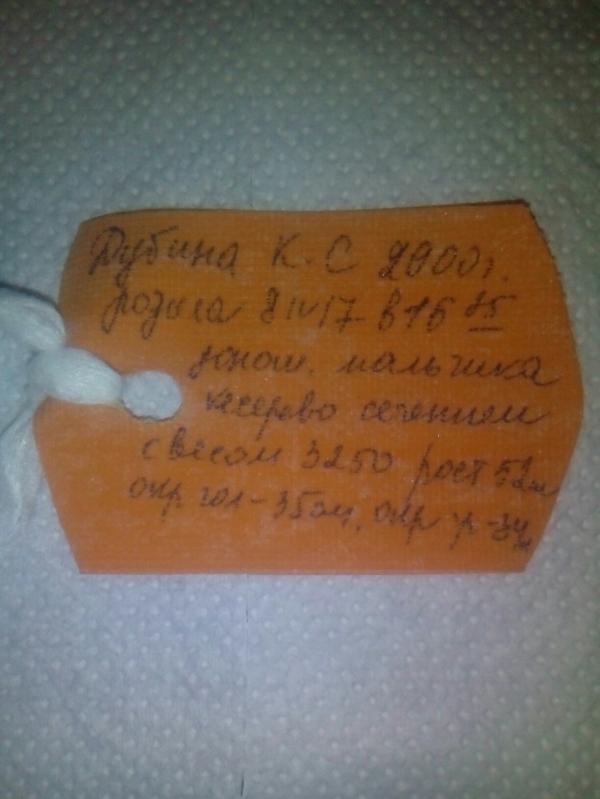 Дубина К. С 2000г.
родила 8 IV 17 в 16 25
донош. мальчика
кесерево сечением
с весом 3250 рост 52см
окр гол - 35см, окр гр - 34